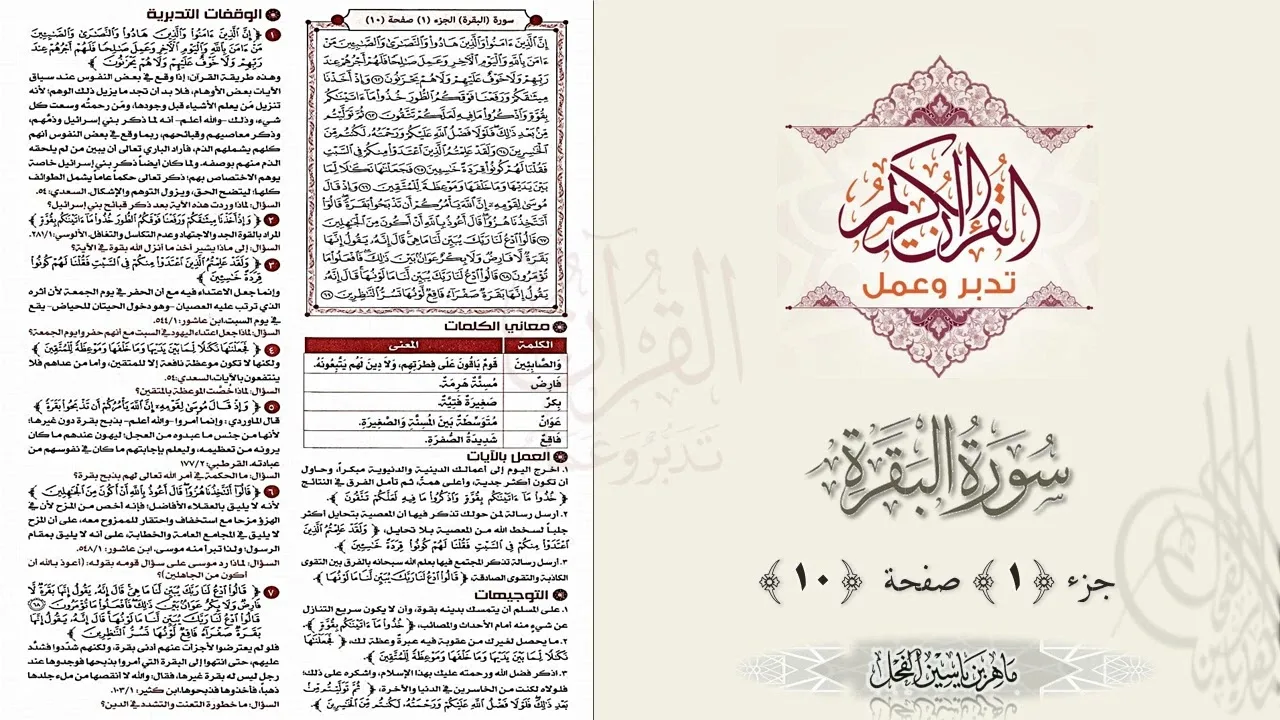 سورة (البقرة) الجزء (١) صفحة (١٠)
إِنَّ الَّذِينَ ءَامَنُوا وَالَّذِينَ هَادُوا وَالنَّصَارَىٰ وَالصَّابِئِينَ مَنْ
ءَامَنَ بِاللَّهِ وَالْيَوْمِ الْآخِرِ وَعَمِلَ صَالِحًا فَلَهُمْ أَجْرُهُمْ عِندَ
رَبِّهِمْ وَلَا خَوْفٌ عَلَيْهِمْ وَلَا هُمْ يَحْزَنُونَ ٦٢ وَإِذْ أَخَذْنَا
مِيثَاقَكُمْ وَرَفَعْنَا فَوْقَكُمُ الطُّورَ خُذُوا مَا ءَاتَيْنَاكُم
بِقُوَّةٍ وَاذْكُرُوا مَا فِيهِ لَعَلَّكُمْ تَتَّقُونَ ٦٣ ثُمَّ تَوَلَّيْتُم
مِّن بَعْدِ ذَٰلِكَ فَلَوْلَا فَضْلُ اللَّهِ عَلَيْكُمْ وَرَحْمَتُهُ لَكُنتُم مِّنَ
الْخَاسِرِينَ ٦٤ وَلَقَدْ عَلِمْتُمُ الَّذِينَ اعْتَدَوْا مِنكُمْ فِي السَّبْتِ
فَقُلْنَا لَهُمْ كُونُوا قِرَدَةً خَاسِئِينَ ٦٥ فَجَعَلْنَاهَا نَكَالًا لِّمَا
بَيْنَ يَدَيْهَا وَمَا خَلْفَهَا وَمَوْعِظَةً لِّلْمُتَّقِينَ ٦٦ وَإِذْ قَالَ
مُوسَىٰ لِقَوْمِهِ إِنَّ اللَّهَ يَأْمُرُكُمْ أَن تَذْبَحُوا بَقَرَةً قَالُوا
أَتَتَّخِذُنَا هُزُوًا قَالَ أَعُوذُ بِاللَّهِ أَنْ أَكُونَ مِنَ الْجَاهِلِينَ
٦٧ قَالُوا ادْعُ لَنَا رَبَّكَ يُبَيِّن لَّنَا مَا هِيَ قَالَ إِنَّهُ يَقُولُ إِنَّهَا
بَقَرَةٌ لَّا فَارِضٌ وَلَا بِكْرٌ عَوَانٌ بَيْنَ ذَٰلِكَ فَافْعَلُوا مَا
تُؤْمَرُونَ ٦٨ قَالُوا ادْعُ لَنَا رَبَّكَ يُبَيِّن لَّنَا مَا لَوْنُهَا قَالَ إِنَّهُ
يَقُولُ إِنَّهَا بَقَرَةٌ صَفْرَاءُ فَاقِعٌ لَّوْنُهَا تَسُرُّ النَّاظِرِينَ ٦٩
معاني الكلمات
الكلمة المعنى
وَالصَّابِئِينَ قَومٌ بَاقُونَ عَلَى فِطرَتِهِم، وَلَا دِينَ لَهُم يَتَّبِعُونَهُ.
فَارِضٌ مُسِنَّةٌ هَرِمَةٌ.
بِكرٌ صَغِيرَةٌ فَتِيَّةٌ.
عَوَانٌ مُتَوَسِّطَةٌ بَينَ المُسِنَّةِ وَالصَّغِيرَةِ.
فَاقِعٌ شَدِيدَةُ الصُّفرَةِ.
العمل بالآيات
١. اخرج اليوم إلى أعمالك الدينية والدنيوية مبكراً، وحاول
أن تكون أكثر جدية، وأعلى همة، ثم تأمل الفرق في النتائج
﴿ خُذُوا مَا ءَاتَيْنَاكُم بِقُوَّةٍ وَاذْكُرُوا مَا فِيهِ لَعَلَّكُمْ تَتَّقُونَ ﴾.
٢. أرسل رسالة لمن حولك تذكر فيها أن المعصية بتحايل أكثر
جلباً لسخط الله من المعصية بلا تحايل، ﴿ وَلَقَدْ عَلِمْتُمُ الَّذِينَ
اعْتَدَوْا مِنكُمْ فِي السَّبْتِ فَقُلْنَا لَهُمْ كُونُوا قِرَدَةً خَاسِئِينَ ﴾.
٣. أرسل رسالة تذكر المجتمع فيها بعلم الله سبحانه بالفرق بين التقوى
الكاذبة والتقوى الصادقة ﴿ قَالُوا ادْعُ لَنَا رَبَّكَ يُبَيِّن لَّنَا مَا لَوْنُهَا ﴾
التوجيهات
١. على المسلم أن يتمسك بدينه بقوة، وأن لا يكون سريع التنازل
عن شيء منه أمام الأحداث والمصائب، ﴿ خُذُوا مَا ءَاتَيْنَاكُم بِقُوَّةٍ ﴾.
٢. ما يحصل لغيرك من عقوبة فيه عبرة وعظة لك، ﴿ فَجَعَلْنَاهَا
نَكَالًا لِّمَا بَيْنَ يَدَيْهَا وَمَا خَلْفَهَا وَمَوْعِظَةً لِّلْمُتَّقِينَ ﴾.
٣. اذكر فضل الله ورحمته عليك بهذا الإسلام، واشكره على ذلك؛
فلولاه لكنت من الخاسرين في الدنيا والآخرة، ﴿ ثُمَّ تَوَلَّيْتُم مِّن
بَعْدِ ذَٰلِكَ فَلَوْلَا فَضْلُ اللَّهِ عَلَيْكُمْ وَرَحْمَتُهُ لَكُنتُم مِّنَ الْخَاسِرِينَ ﴾.
الوقفات التدبرية
١ ﴿ إِنَّ الَّذِينَ ءَامَنُوا وَالَّذِينَ هَادُوا وَالنَّصَارَىٰ وَالصَّابِئِينَ
مَنْ ءَامَنَ بِاللَّهِ وَالْيَوْمِ الْآخِرِ وَعَمِلَ صَالِحًا فَلَهُمْ أَجْرُهُمْ عِندَ
رَبِّهِمْ وَلَا خَوْفٌ عَلَيْهِمْ وَلَا هُمْ يَحْزَنُونَ ﴾
وهذه طريقة القرآن: إذا وقع في بعض النفوس عند سياق
الآيات بعض الأوهام، فلا بد أن تجد ما يزيل ذلك الوهم؛ لأنه
تنزيل مَن يعلم الأشياء قبل وجودها، ومَن رحمتُه وسعت كل
شيء، وذلك -والله أعلم- أنه لما ذكر بني إسرائيل وذمَّهم،
وذكر معاصيهم وقبائحهم، ربما وقع في بعض النفوس أنهم
كلهم يشملهم الذم، فأراد الباري تعالى أن يبين من لم يلحقه
الذم منهم بوصفه. ولما كان أيضاً ذكر بني إسرائيل خاصة
يوهم الاختصاص بهم؛ ذكر تعالى حكماً عاماً يشمل الطوائف
كلها؛ ليتضح الحق، ويزول التوهم والإشكال. السعدي: ٥٤.
السؤال: لماذا وردت هذه الآية بعد ذكر قبائح بني إسرائيل؟
٢ ﴿ وَإِذْ أَخَذْنَا مِيثَاقَكُمْ وَرَفَعْنَا فَوْقَكُمُ الطُّورَ خُذُوا مَا ءَاتَيْنَاكُم بِقُوَّةٍ ﴾
المراد بالقوة الجد والاجتهاد وعدم التكاسل والتغافل. الألوسي: ٢٨١/١.
السؤال: إلى ماذا يشير أخذ ما أنزل الله بقوة في الآية؟
٣ ﴿ وَلَقَدْ عَلِمْتُمُ الَّذِينَ اعْتَدَوْا مِنكُمْ فِي السَّبْتِ فَقُلْنَا لَهُمْ كُونُوا
قِرَدَةً خَاسِئِينَ ﴾
وإنما جعل الاعتداء فيه مع أن الحفر في يوم الجمعة لأن أثره
الذي ترتب عليه العصيان -وهو دخول الحيتان للحياض- يقع
في يوم السبت. ابن عاشور: ٥٤٤/١.
السؤال: لماذا جعل اعتداء اليهود في السبت مع أنهم حفروا يوم الجمعة؟
٤ ﴿ فَجَعَلْنَاهَا نَكَالًا لِّمَا بَيْنَ يَدَيْهَا وَمَا خَلْفَهَا وَمَوْعِظَةً لِّلْمُتَّقِينَ ﴾
ولكنها لا تكون موعظة نافعة إلا للمتقين، وأما من عداهم فلا
ينتفعون بالآيات. السعدي: ٥٤.
السؤال: لماذا خُصَّت الموعظة بالمتقين؟
٥ ﴿ وَإِذْ قَالَ مُوسَىٰ لِقَوْمِهِ إِنَّ اللَّهَ يَأْمُرُكُمْ أَن تَذْبَحُوا بَقَرَةً ﴾
قال الماوردي: وإنما أمروا -والله أعلم- بذبح بقرة دون غيرها؛
لأنها من جنس ما عبدوه من العجل؛ ليهون عندهم ما كان
يرونه من تعظيمه، وليعلم بإجابتهم ما كان في نفوسهم من
عبادته. القرطبي: ١٧٧/٢.
السؤال: ما الحكمة في أمر الله تعالى لهم بذبح بقرة؟
٦ ﴿ قَالُوا أَتَتَّخِذُنَا هُزُوًا قَالَ أَعُوذُ بِاللَّهِ أَنْ أَكُونَ مِنَ الْجَاهِلِينَ ﴾
لأنه لا يليق بالعقلاء الأفاضل؛ فإنه أخص من المزح لأن في
الهزؤ مزحا مع استخفاف واحتقار للممزوح معه، على أن المزح
لا يليق في المجامع العامة والخطابة، على أنه لا يليق بمقام
الرسول؛ ولذا تبرأ منه موسى. ابن عاشور: ٥٤٨/١.
السؤال: لماذا رد موسى على سؤال قومه بقوله: (أعوذ بالله أن
أكون من الجاهلين)؟
٧ ﴿ قَالُوا ادْعُ لَنَا رَبَّكَ يُبَيِّن لَّنَا مَا هِيَ قَالَ إِنَّهُ يَقُولُ إِنَّهَا بَقَرَةٌ لَّا
فَارِضٌ وَلَا بِكْرٌ عَوَانٌ بَيْنَ ذَٰلِكَ فَافْعَلُوا مَا تُؤْمَرُونَ ٦٨
قَالُوا ادْعُ لَنَا رَبَّكَ يُبَيِّن لَّنَا مَا لَوْنُهَا قَالَ إِنَّهُ يَقُولُ إِنَّهَا
بَقَرَةٌ صَفْرَاءُ فَاقِعٌ لَّوْنُهَا تَسُرُّ النَّاظِرِينَ ﴾
فلو لم يعترضوا لأجزأت عنهم أدنى بقرة، ولكنهم شدّدوا فشدَّد
عليهم، حتى انتهوا إلى البقرة التي أمروا بذبحها فوجدوها عند
رجل ليس له بقرة غيرها، فقال: والله لا أنقصها من ملء جلدها
ذهباً، فأخذوها فذبحوها. ابن كثير: ١٠٣/١.
السؤال: ما خطورة التعنت والتشدد في الدين؟
القرآن الكريم
تدبر وعمل
سُورَةُ البَقَرَةِ
جزء ﴿ ١ ﴾ صفحة ﴿ ١٠ ﴾
ماهر بن ياسين الفحل